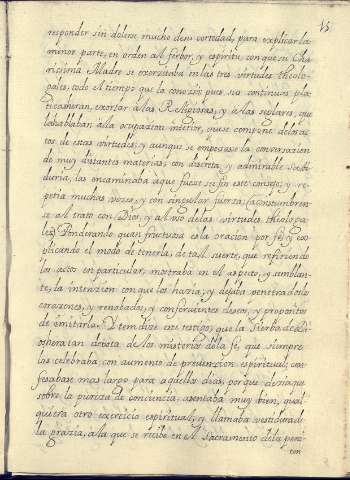 15
responder sin dolerse mucho de su cortedad, para explicar la
menor parte, en orden al ferbor, y espiritu, con que su Cha
risima Madre se exercitaba en las tres virtudes theolo-
gales, todo el tiempo que la conoció; pues sus continuas pla
ticas eran, exortar a las Religiosas, y a las seglares, que
la hablaban â la ocupazion interior, que se compone de los ac
tos de estas virtudes; y aunque se empesase la conversazion
de muy distantes materias, con discreta, y admirable sabi-
duria, las encaminaba aque fuese su fin este consejo; y re-
petia muchas vezes, y con singular fuerza: Acostumbren
se al trato con Dios, y al uso de las virtudes theologa-
les) Ponderando quan fructuosa es la orazion por fé, y ex-
plicando el modo de tenerla; de tal suerte, que refiriendo
los actos en particular, mostraba en el aspecto, y semblan-
te, la intenzion con que los hazia; y dejaba penetrados los
corazones, y renobados, y con fervientes deseos, y propositos
de imitarla. Yten dize este testigo, que la Sierba de Dios
era tan devota de los misterios de la fé, que siempre
los celebraba con aumento de prevenzion espiritual; con
fesabase mas largo para aquellos dias, porque dezia que
sobre la pureza de conciencia, asentaba muy bien, qual
quiera otro exercicio espiritual; y llamaba vestidura de
la grazia, a la que se recibe en el Sacramento de la peni
ten